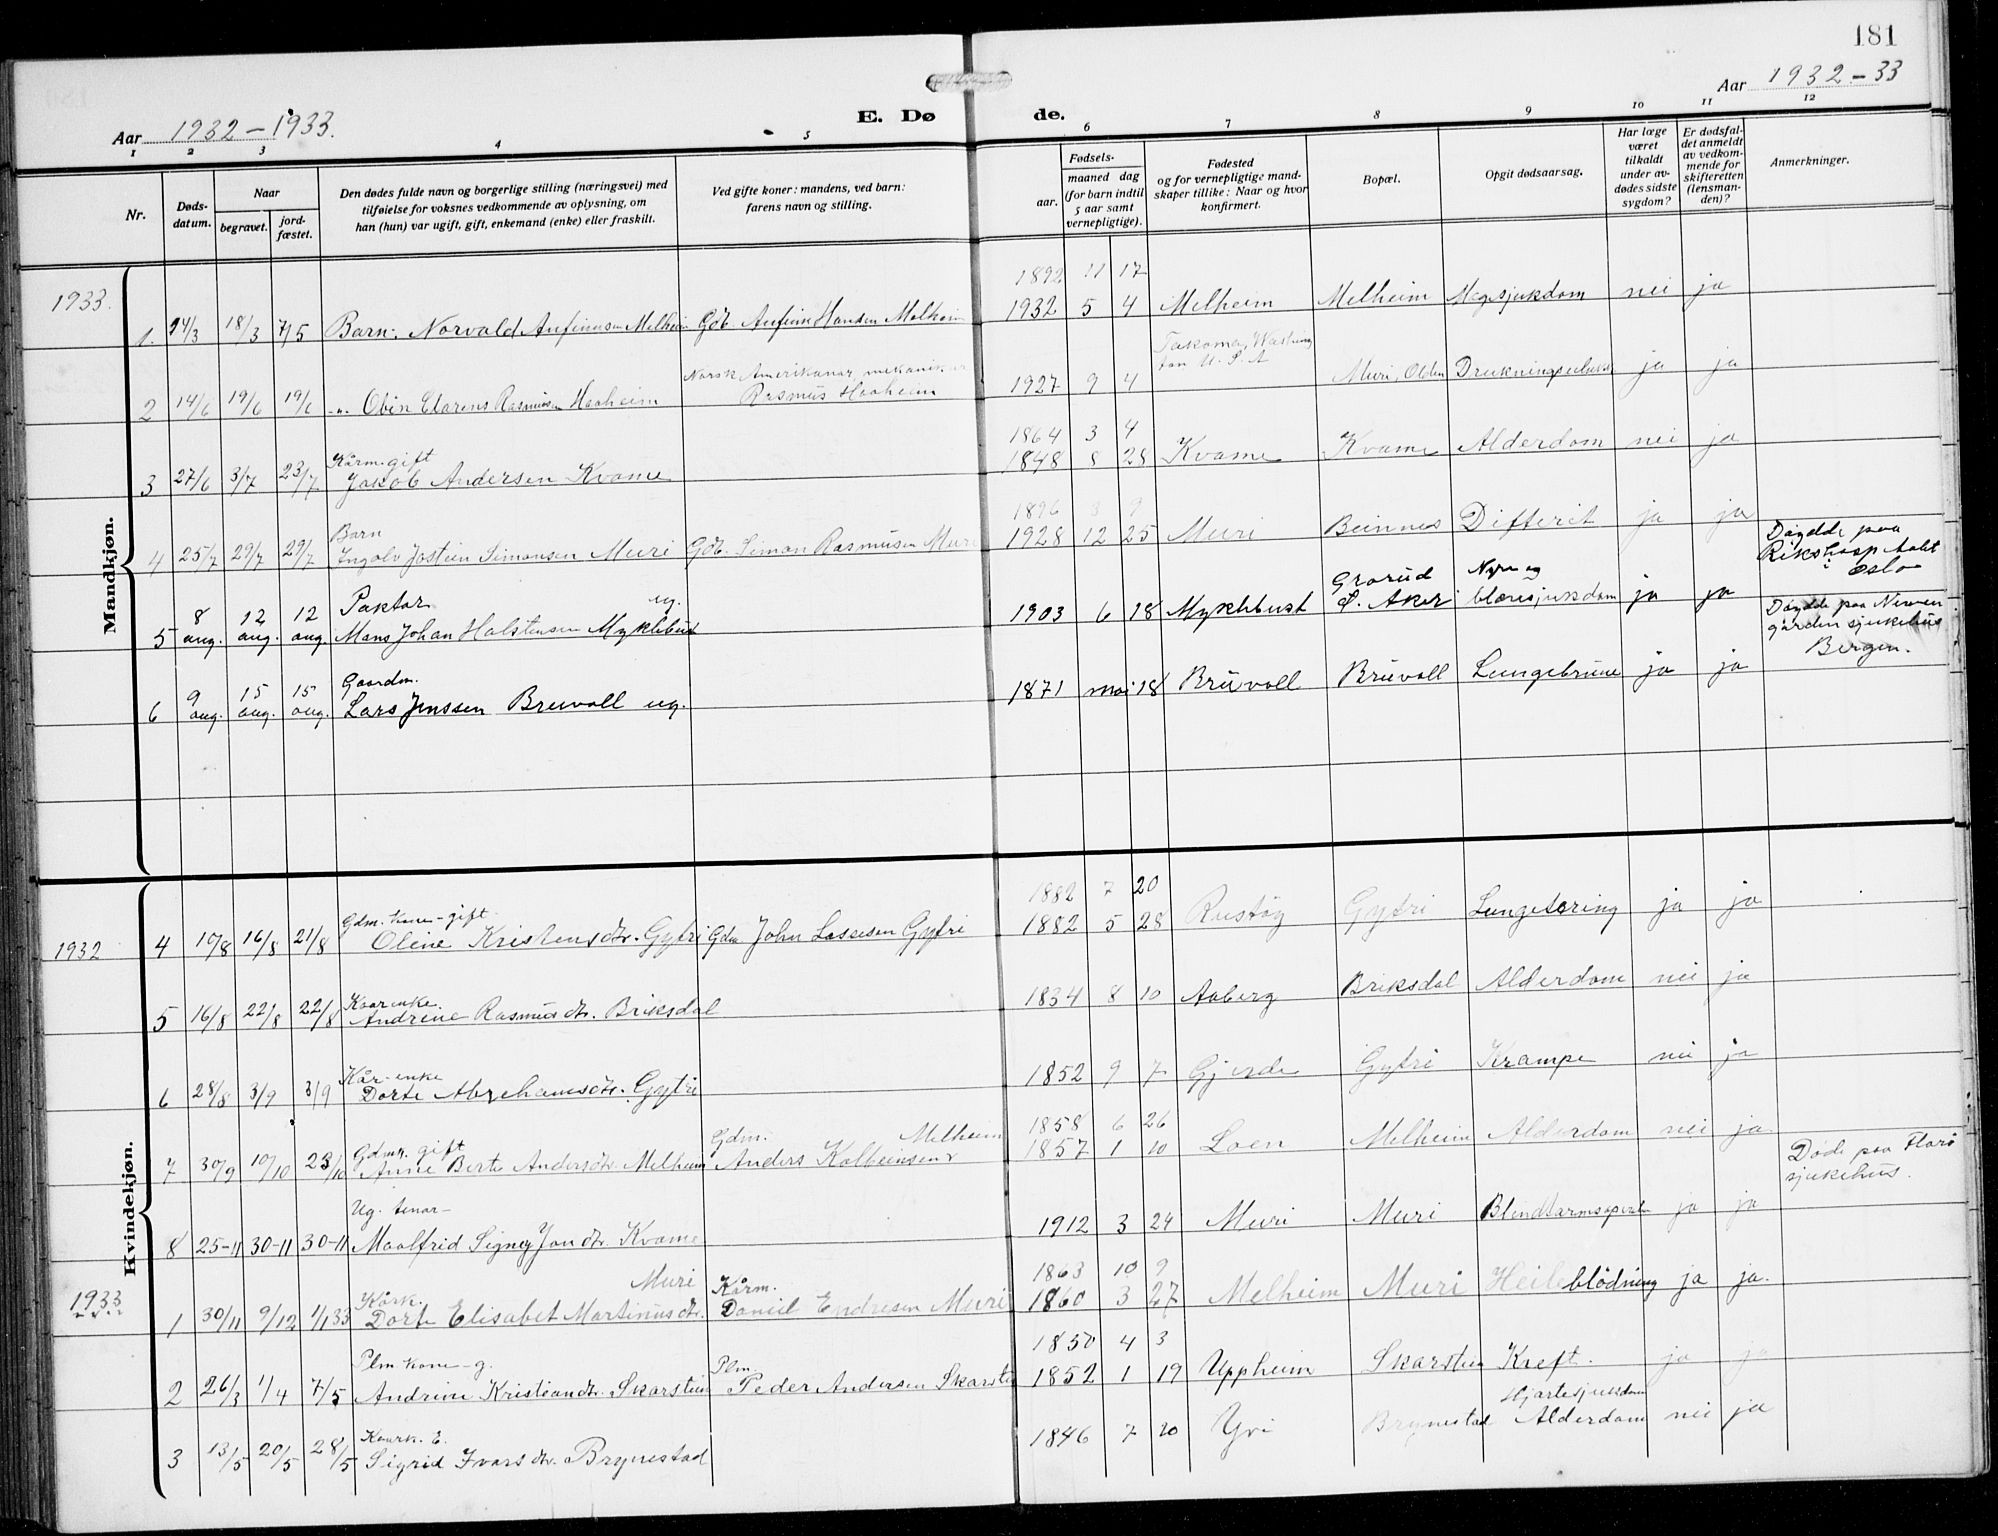 181
Aar 1932-1933.
E. Dø de.
Aar 1932-33
1 2 3 4 5 6 7 8 9 10 11 12
Nr.
Døds-datum.
Naar
begravet.
jord-fæstet.
Den dødes fulde navn og borgerlige stilling (næringsvei) med
tilføielse for voksnes vedkommende av oplysning, om
han (hun) var ugift, gift, enkemand (enke) eller fraskilt.
Ved gifte koner: mandens, ved barn:
farens navn og stilling.
Fødsels-
aar.
maaned dag
(for barn indtil
5 aar samt
vernepligtige).
Fødested
og for vernepligtige mand-
skaper tillike: Naar og hvor
konfirmert.
Bopæl.
Opgit dødsaarsag.
Har læge
været
tilkaldt
under av-
dødes sidste
sygdom?
Er dødsfal-
det anmeldt
av vedkom-
mende for
skifteretten
(lensman-
den)?
Anmerkninger.
Mandkjøn.
1892 11 17
1933. 1. 14/3 18/3 7/5 Barn: Norvald Anfinnsen Melheim Gdb. Anfinn Hansen Melheim 1932 5 4 Melheim Melheim Magesjukdom nei ja
Norsk Amerikanar, mekanikar
Takoma, Washing
ton U.S.A
2 14/6 19/6 19/6 -"- Obin Clarens Rasmussen Haaheim Rasmus Haaheim 1927 9 4 Muri, Olden ja ja
Kårm. gift
1864 3 4
3 27/6 3/7 23/7 Jakob Andersen Kvame 1848 8 28 Kvame Kvame Alderdom nei ja
Barn
1896 3 9
4 25/7 29/7 29/7 Ingolv Jostein Simonsen Muri Gdb. Simon Rasmusen Muri 1928 12 25 Muri Beinnes Difterit ja ja
Døydde paa
Rikshosp
i Oslo
Faktor ug.
Grorud Nyre og
5 8 aug. 12 aug. 12 aug. Mons Johan Halstensen Myklebust 1903 6 18 Myklebust Ø. Aker blæresjukdom ja ja
Døydde paa
sjukehus
Bergen.
Gaardm.
6 9 aug. 15 aug. 15 aug. Lars Jenssen Bruvoll ug. 1871 mai 18 Bruvoll Bruvoll Lungebrune ja ja
Kvindekjøn.
Gdm. kone-gift
1882 7 20
1932 4 10/8 16/8 21/8 Oline Kristensdtr. Gytri Gdm John Lassesen Gytri 1882 5 28 Rustøy Gytri Lungetæring ja ja
Kaarenke.
5 16/8 22/8 22/8 Andrine Rasmusdtr. Briksdal 1834 8 10 Aaberg Briksdal Alderdom nei ja
Kår-enke
6 28/8 3/9 3/9 Dorte Abrehamsdtr. Gytri 1852 9 7 Gjerde Gytri Krampe nei ja
Gdmk. gift
Gdm. Melheim
1858 6 26
7 30/9 10/10 23/10 Anne Berte Andersdtr. Melheim Anders Kolbeinsen 1857 1 10 Loen Melheim Alderdom nei ja
Ug. tenar-
Døde paa Florø
sjukehus.
8 25-11 30-11 30-11 Maalfrid Signey Jondtr. Kvame 1912 3 24 Muri Muri Blindtarmsoperation ja ja
Kårk. Muri
Kårm.
1863 10 9
1933 1 30/11 9/12 1/1 33 Dorte Elisabet Martinusdtr. Daniel Endresen Muri 1860 3 27 Melheim Muri Heileblödning ja ja.
Plm kone-g.
Plm.
1850 4 3
2 26/3 1/4 7/5 Andrine Kristiandtr. Skarstein Peder Andersen Skarstein 1852 1 19 Uppheim Skarstein Kreft. ja ja
Kaark. E.
Hjartesjukdom
3 13/5 20/5 28/5 Sigrid Ivarsdtr. Brynestad 1846 7 20 Yri Brynestad Alderdom nei ja